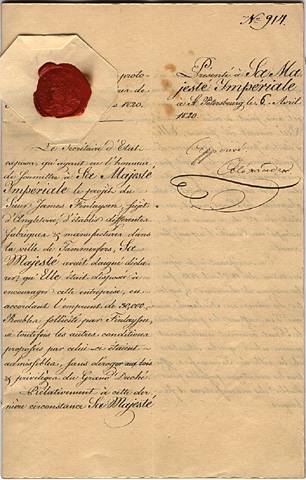 No 914.
proto-
de
1820.
Présenté à Sa Ma
jesté Impériale
à St Pétersbourg, le 6. Avril
1820.
Approuvé
Alexandre
Le Secrétaire d'Etat
ayant eu l'honneur
de soumettre à Sa Majesté
Impériale le projet du
Sieur James Finlayson, sujet
d'Angleterre, d'établir différentes
fabriques & manufactures dans
la ville de Tammerfors, Sa
Majesté avait daigné décla-
rer, qu'Elle était disposé à
encourager cette entreprise, en
accordant l'emprunt de 30,000,
Roubles sollicité par Finlayson,
si toutefois les autres conditions
proposées par celui-ci étaient
admissibles, sans déroger aux lois
& privilèges du Grand Duché.
Relativement à cette der-
nière circonstance Sa Majesté